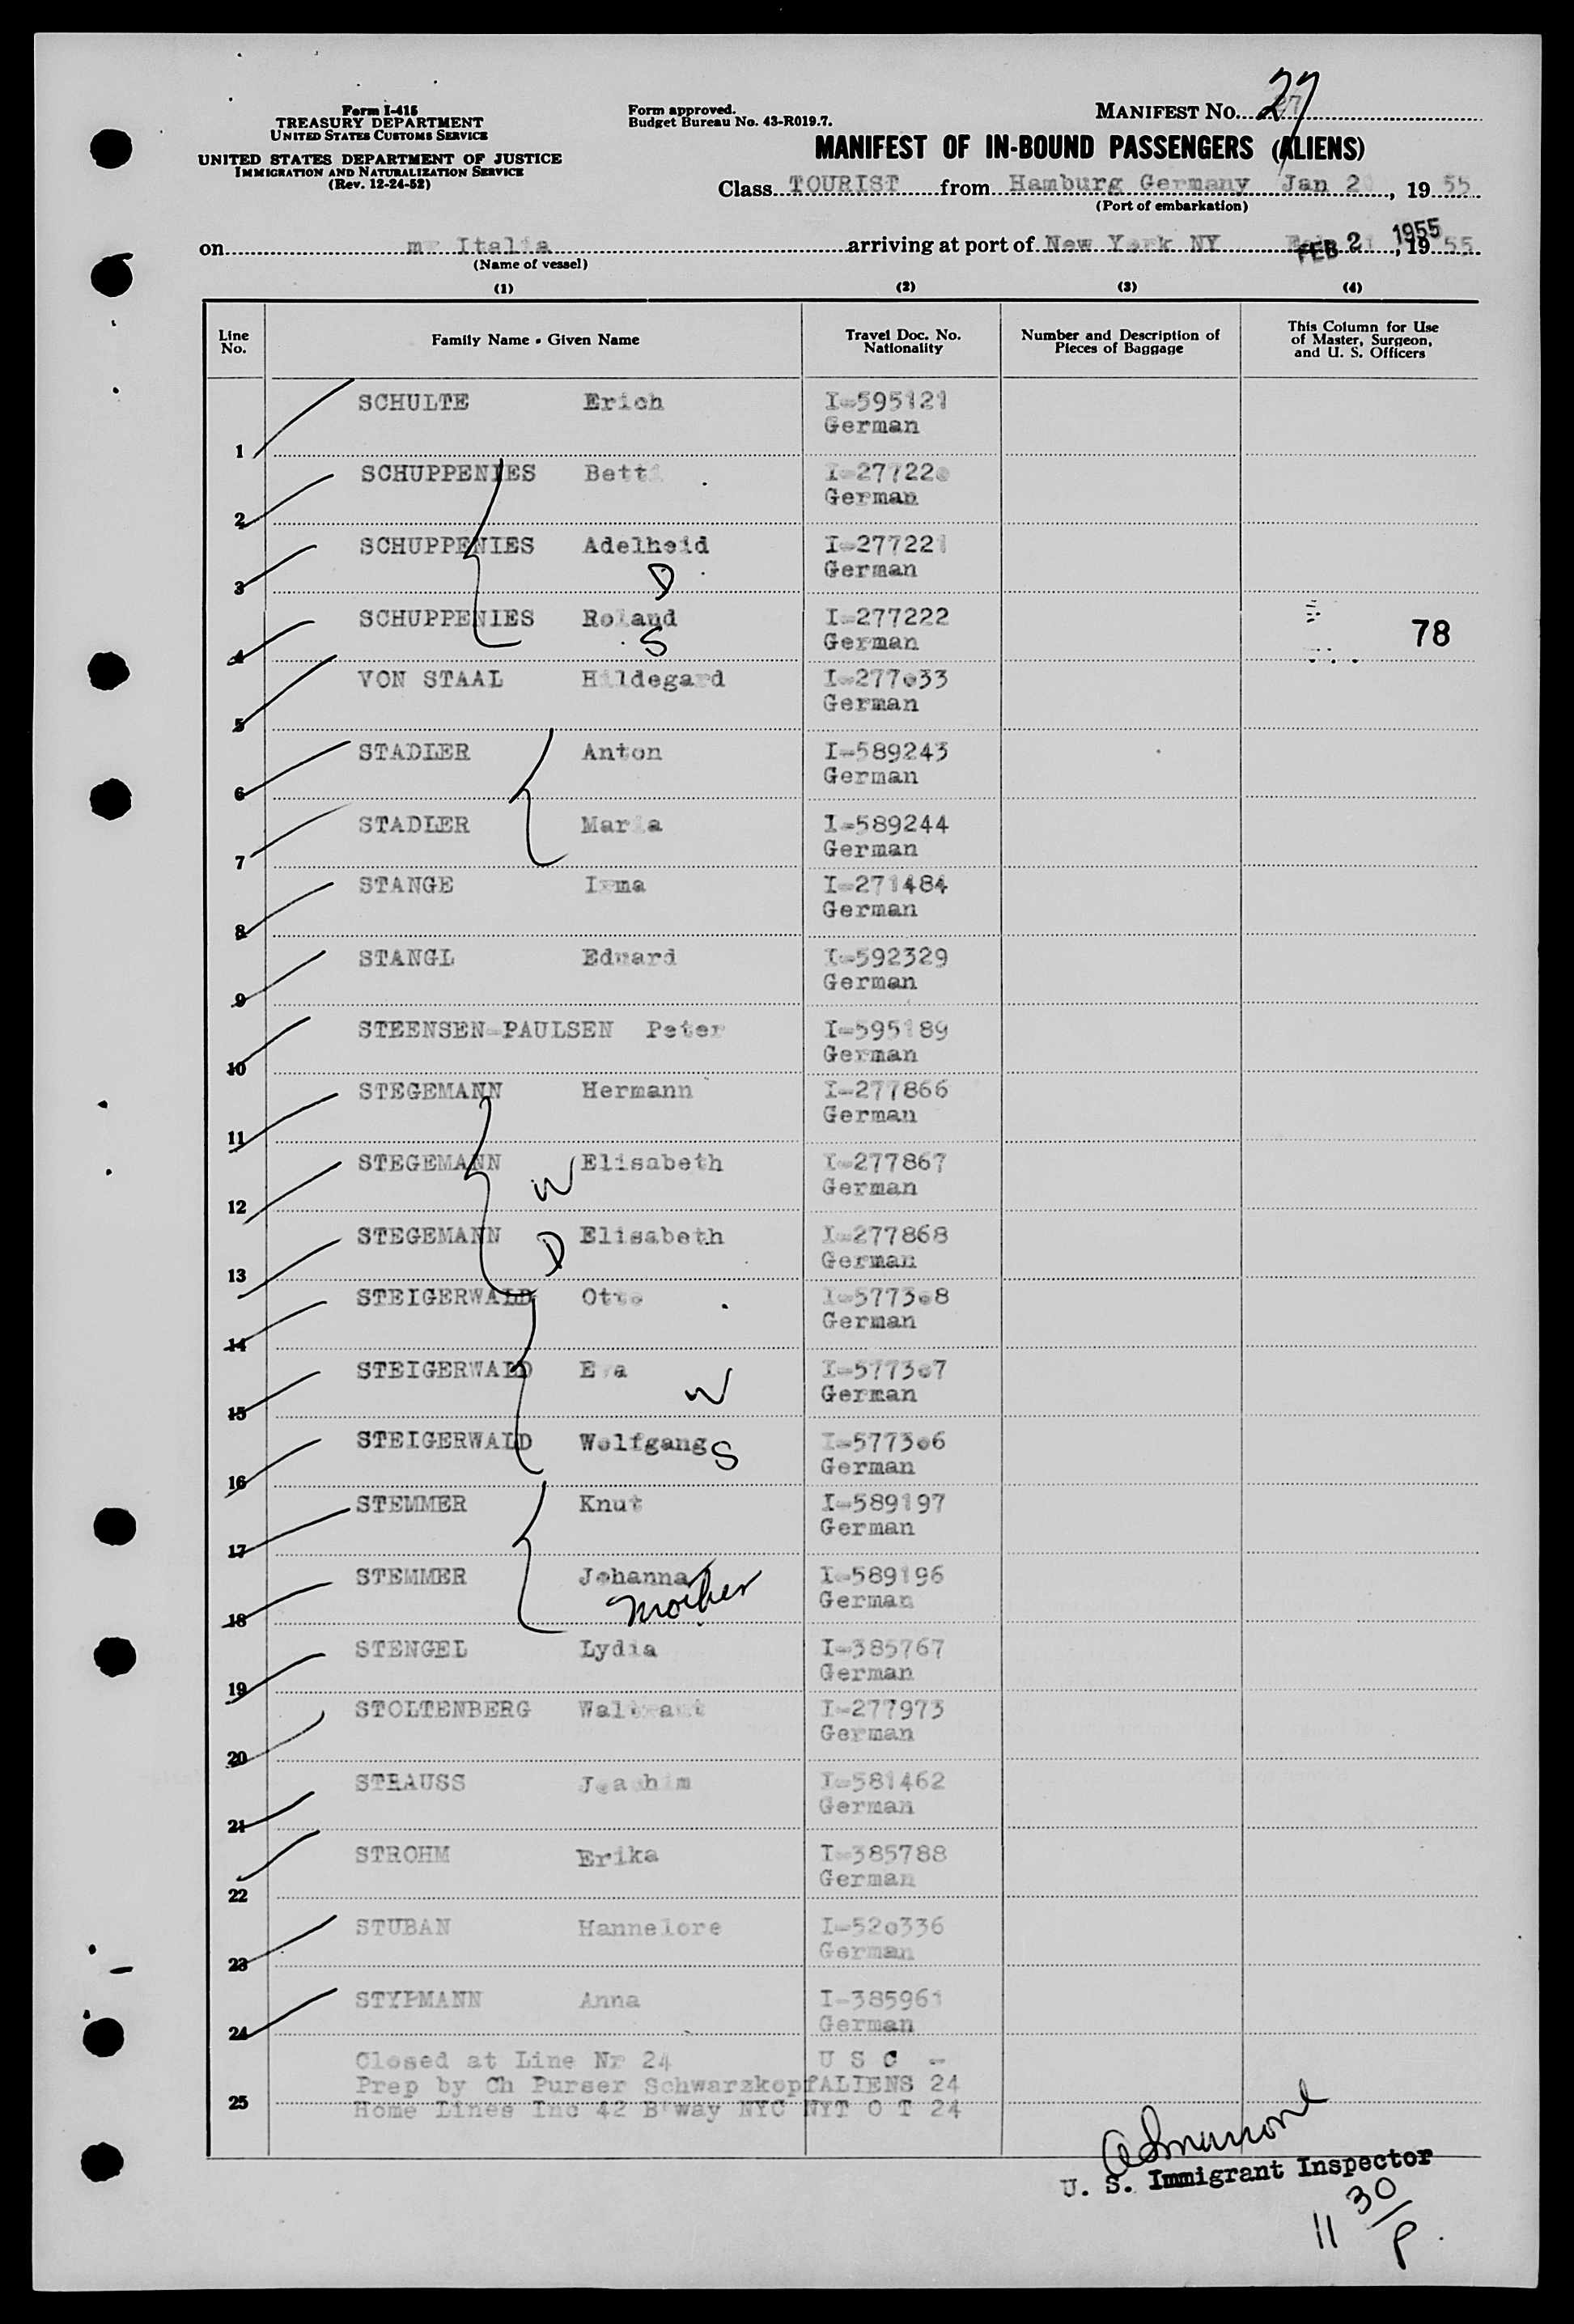 Form I-415
TREASURY DEPARTMENT
UNITED STATES CUSTOMS SERVICE
UNITED STATES DEPARTMENT OF JUSTICE
IMMIGRATION AND NATURALIZATION SERVICE
(Rev. 12-24-52)
Form approved.
Budget Bureau No. 43-R019.7.
MANIFEST NO. 27
MANIFEST OF IN-BOUND PASSENGERS (ALIENS)
Class TOURIST from Hamburg Germany Jan 2 , 19 55
(Port of embarkation)
on Italia arriving at port of New York NY FEB 2 1955 , 19 55
(Name of vessel)
(1) (2) (3) (4)
Line No. Family Name - Given Name Travel Doc. No. Nationality Number and Description of Pieces of Baggage This Column for Use of Master, Surgeon, and U. S. Officers
1 SCHULTE Erich I-595121
German
2 SCHUPPENIES Betti I-27722o
German
3 SCHUPPENIES Adelheid I-277221
German
D
4 SCHUPPENIES Roland I-277222
German 78
S
5 VON STAAL Hildegard I-277o33
German
6 STADLER Anton I-589243
German
7 STADLER Maria I-589244
German
8 STANGE Irma I-271484
German
9 STANGL Eduard I-592329
German
10 STEENSEN-PAULSEN Peter I-595189
German
11 STEGEMANN Hermann I-277866
German
12 STEGEMANN W Elisabeth I-277867
German
13 STEGEMANN D Elisabeth I-277868
German
14 STEIGERWALD Otto I-5773o8
German
15 STEIGERWALD Eva I-5773o7
W German
16 STEIGERWALD Wolfgang S I-5773o6
German
17 STEMMER Knut I-589197
German
18 STEMMER Johanna I-589196
Mother German
19 STENGEL Lydia I-385767
German
20 STOLTENBERG Waltraut I-277973
German
21 STRAUSS Joachim I-581462
German
22 STROHM Erika I-385788
German
23 STUBAN Hannelore I-52o336
German
24 STYPMANN Anna I-385961
German
Closed at Line Nr 24 U S C -
Prep by Ch Purser Schwarzkopf ALIENS 24
25 Home Lines Inc 42 B'way NYC NYT O T 24
U. S. Immigrant Inspector
11 30/P.